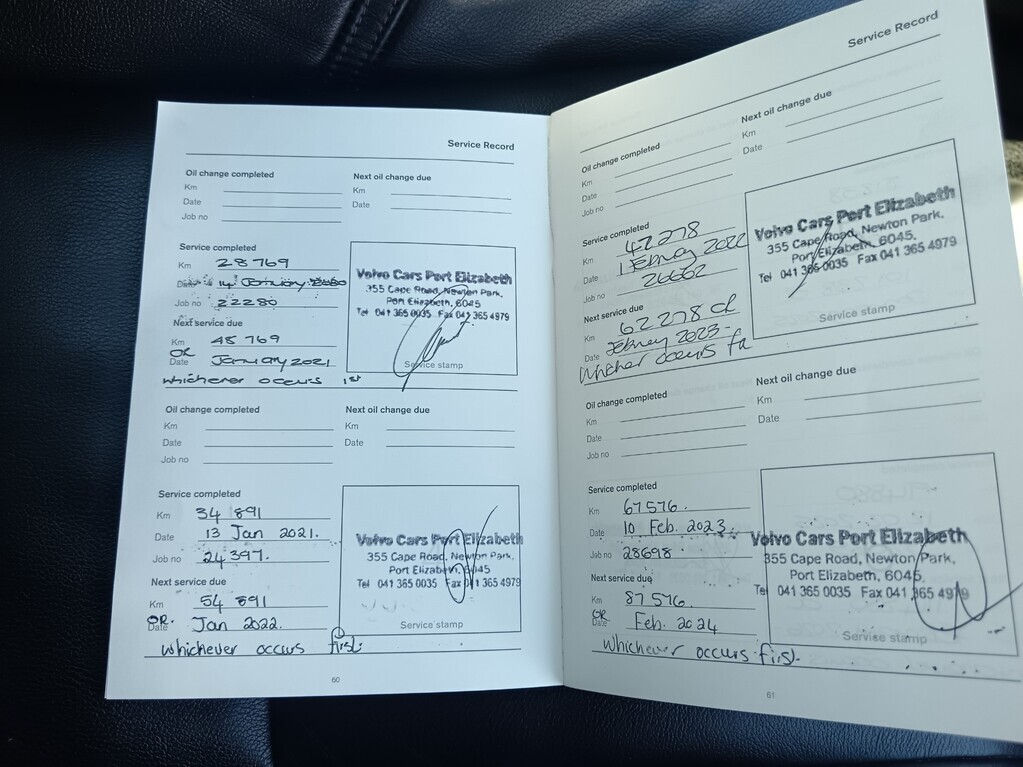 Service Record
Oil change completed
Next oil change due
Km
Km
Date
Date
Job no
Service completed
Km 28 769
Date 14 January
Job no 22280
Next service due
Km 48 769
OR
Date January 2021
whichever occurs 1st
Volvo Cars Port Elizabeth
355 Cape Road, Newton Park,
Port Elizabeth, 6045
Tel 041 365 0035 Fax 041 365 4979
Service stamp
Oil change completed
Next oil change due
Km
Km
Date
Date
Job no
Service completed
Km 34 891
Date 13 Jan 2021.
Job no 24397.
Next service due
Km 54 891
OR.
Date Jan 2022.
whichever occurs first.
Volvo Cars Port Elizabeth
355 Cape Road, Newton Park,
Port Elizabeth, 6045
Tel 041 365 0035 Fax 041 365 4979
Service stamp
60
Service Record
Oil change completed
Next oil change due
Km
Km
Date
Date
Job no
Service completed
Km 42 278
Date 1 2022
Job no
Next service due
Km 62 278
Date 2023
occurs
Volvo Cars Port Elizabeth
355 Cape Road, Newton Park,
Port Elizabeth, 6045.
Tel 041 365 0035 Fax 041 365 4979
Service stamp
Oil change completed
Next oil change due
Km
Km
Date
Date
Job no
Service completed
Km 67576.
Date 10 Feb. 2023.
Job no 28698
Next service due
Km 87576.
OR
Date Feb. 2024
whichever occurs first.
Volvo Cars Port Elizabeth
355 Cape Road, Newton Park,
Port Elizabeth, 6045.
Tel 041 365 0035 Fax 041 365 4979
Service stamp
61